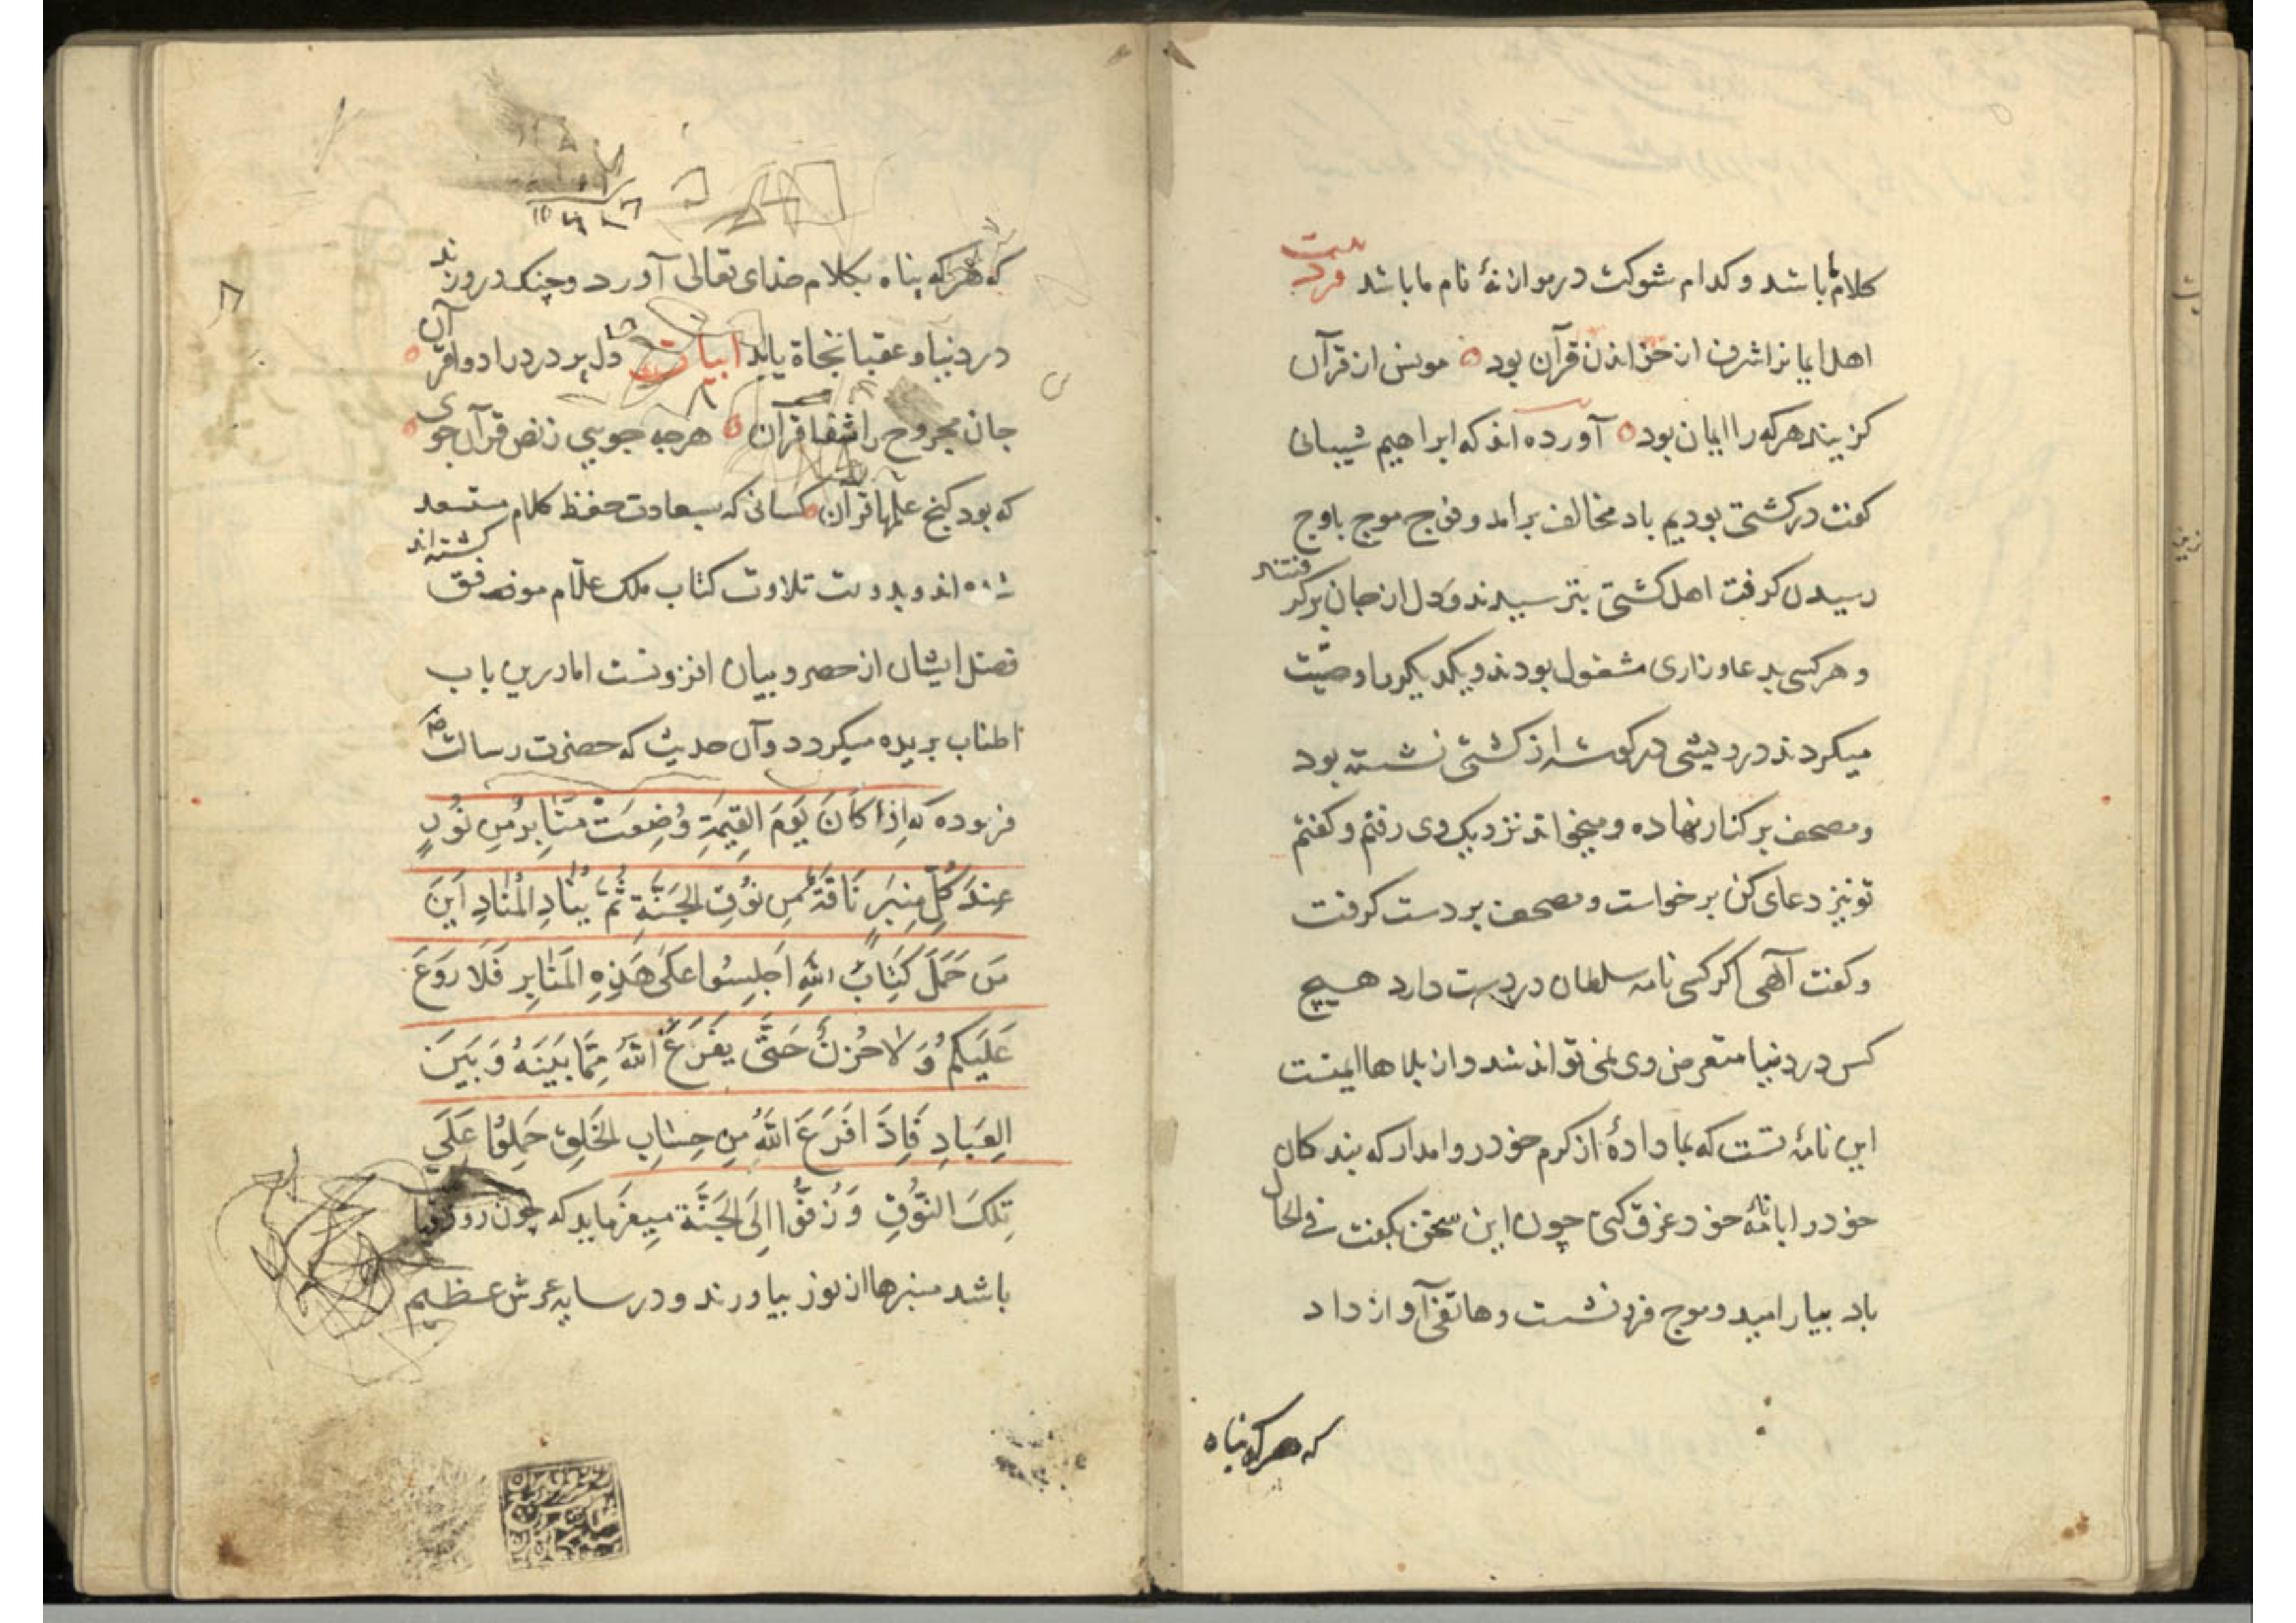 کلام ما باشد و کدام شوکت در موازنهٔ نام ما باشد فرد بیت
اهل ایمانرا شرف از خواندن قرآن بود مونس از قرآن
کزیند هرکه را ایمان بود آورده اند که ابراهیم شیبانی
کفت در کشتی بودیم باد مخالف برامد و فوج موج باوج
رسیدن کرفت اهل کشتی بترسیدند و دل از جان برکرفتند
و هرکسی بدعا و زاری مشغول بودند و یکدیکررا وصیّت
میکردند درویشی در کوشه از کشتی نشسته بود
و مصحف بر کنار نهاده و میخواند نزدیک وی رفتم و کفتم
تو نیز دعای کن برخواست و مصحف بر دست کرفت
و کفت آلهی اکر کسی نامه سلطان در دست دارد هیچ
کس در دنیا متعرض وی نمی تواند شد و از بلاها ایمنست
این نامهٔ تست که بما دادهٔ از کرم خود روا مدار که بندکان
خود را با نامهٔ خود غرق کنی چون این سخن بکفت فی الحال
باد بیارامید و موج فرو نشست و هاتفی آواز داد
که هرکه پناه
که هرکه پناه بکلام خدای تعالی آورد و چنک در وی زند
در دنیا و عقبا نجاة یابد ابیات دل پر درد را دوا قرآن
جان مجروح را شفا قرآن هرچه جویی ز نص قرآن جوی
که بود کنج علمها قرآن کسانی که بسعادت حفظ کلام مستسعد
شده اند و بدولت تلاوت کتاب ملک علّام موفق کشته اند
فضل ایشان از حصر و بیان افزونست اما درین باب
اطناب بریده میکردد و آن حدیث که حضرت رسالت صم
فرموده که اِذا کَانَ یَوْمَ القِیمَةِ وُضِعَتْ مَنَابِرُ مِن نُورٍ
عِندَ کُلِّ مِنبَرٍ نَاقَةٌ مِن نُوقِ الجَنَّةِ ثُمَّ یُنَادِ المُنَادِ اَینَ
مَن حَمَلَ کِتَابَ اللهِ اَجلِسُوا عَلَی هَذِهِ المَنَابِرِ فَلَا رَوعَ
عَلَیکُم وَلَا حُزنَ حَتَّی یَفرَغَ اللهُ مِمَّا بَینَهُ وَ بَینَ
العِبَادِ فَاِذَا فَرَغَ اللهُ مِن حِسَابِ الخَلقِ حُمِلُوا عَلَی
تِلکَ النُّوقِ وَ زُفُّوا اِلَی الجَنَّةِ میفرماید که چون روز قیا
باشد منبرها از نور بیاورند و در سایه عرش عظیم